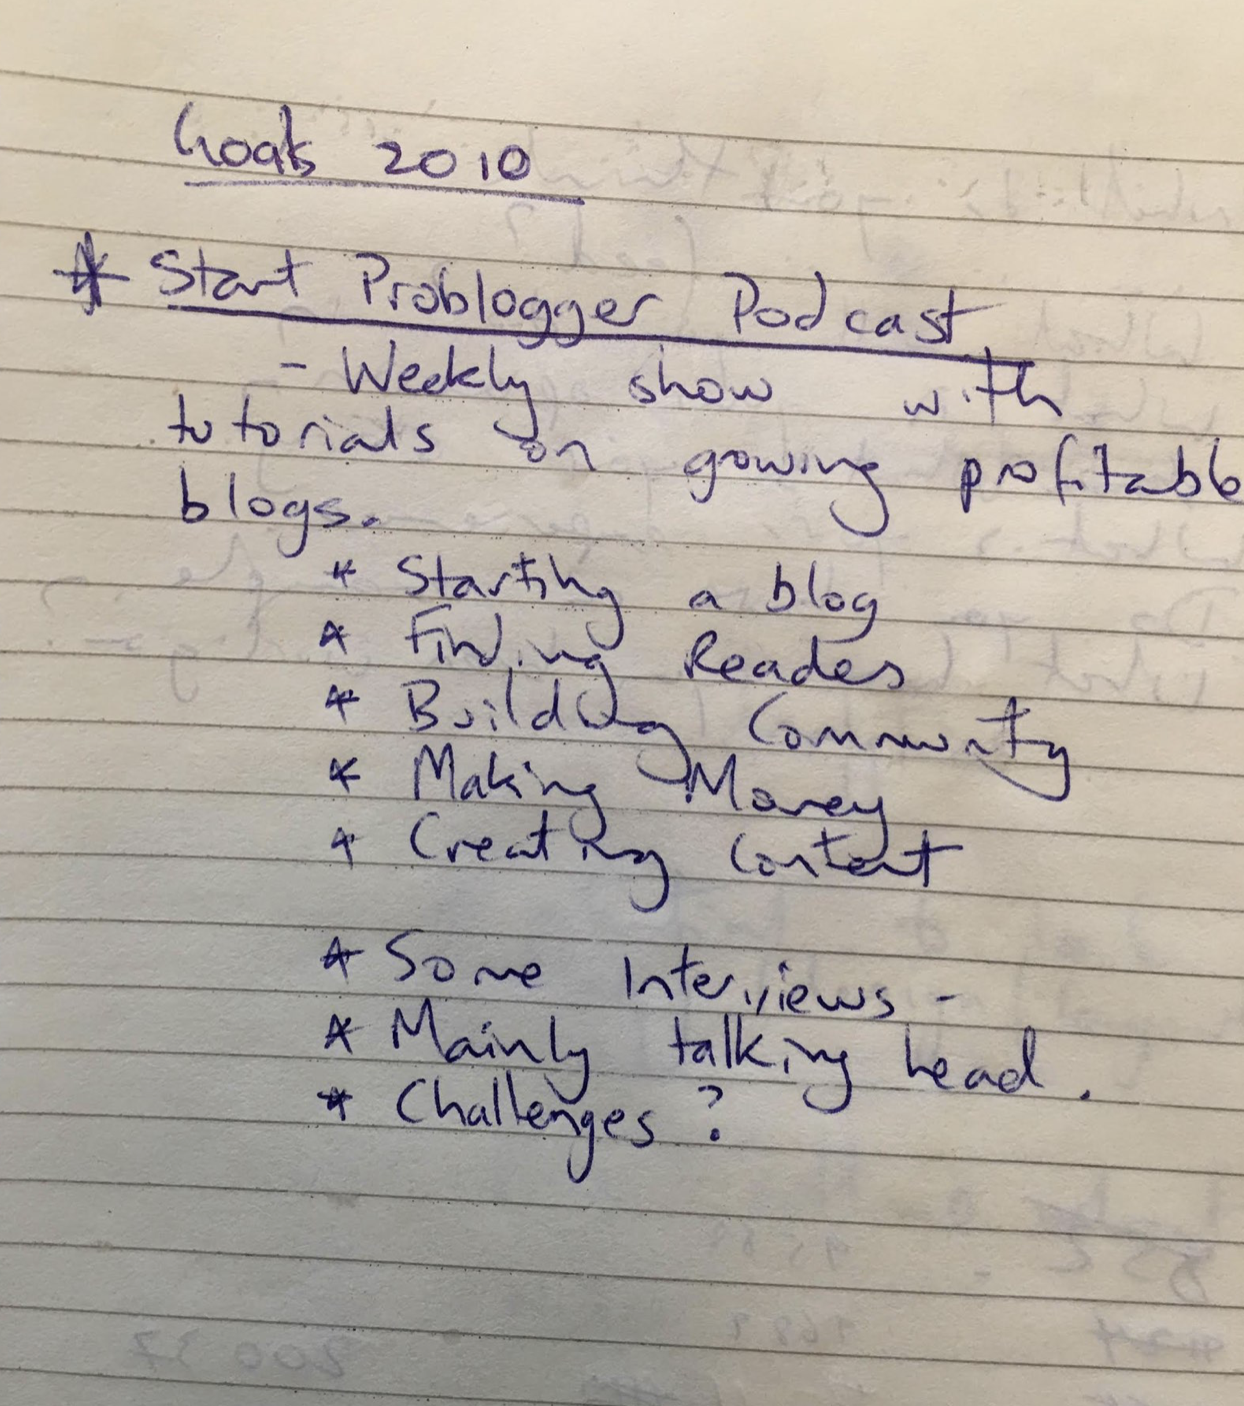 Goals 2010
* Start Problogger Podcast
- Weekly show with
tutorials on growing profitable
blogs.
* Starting a blog
* Finding Readers
* Building Community
* Making Money
* Creating Content
* Some Interviews -
* Mainly talking head.
* Challenges?